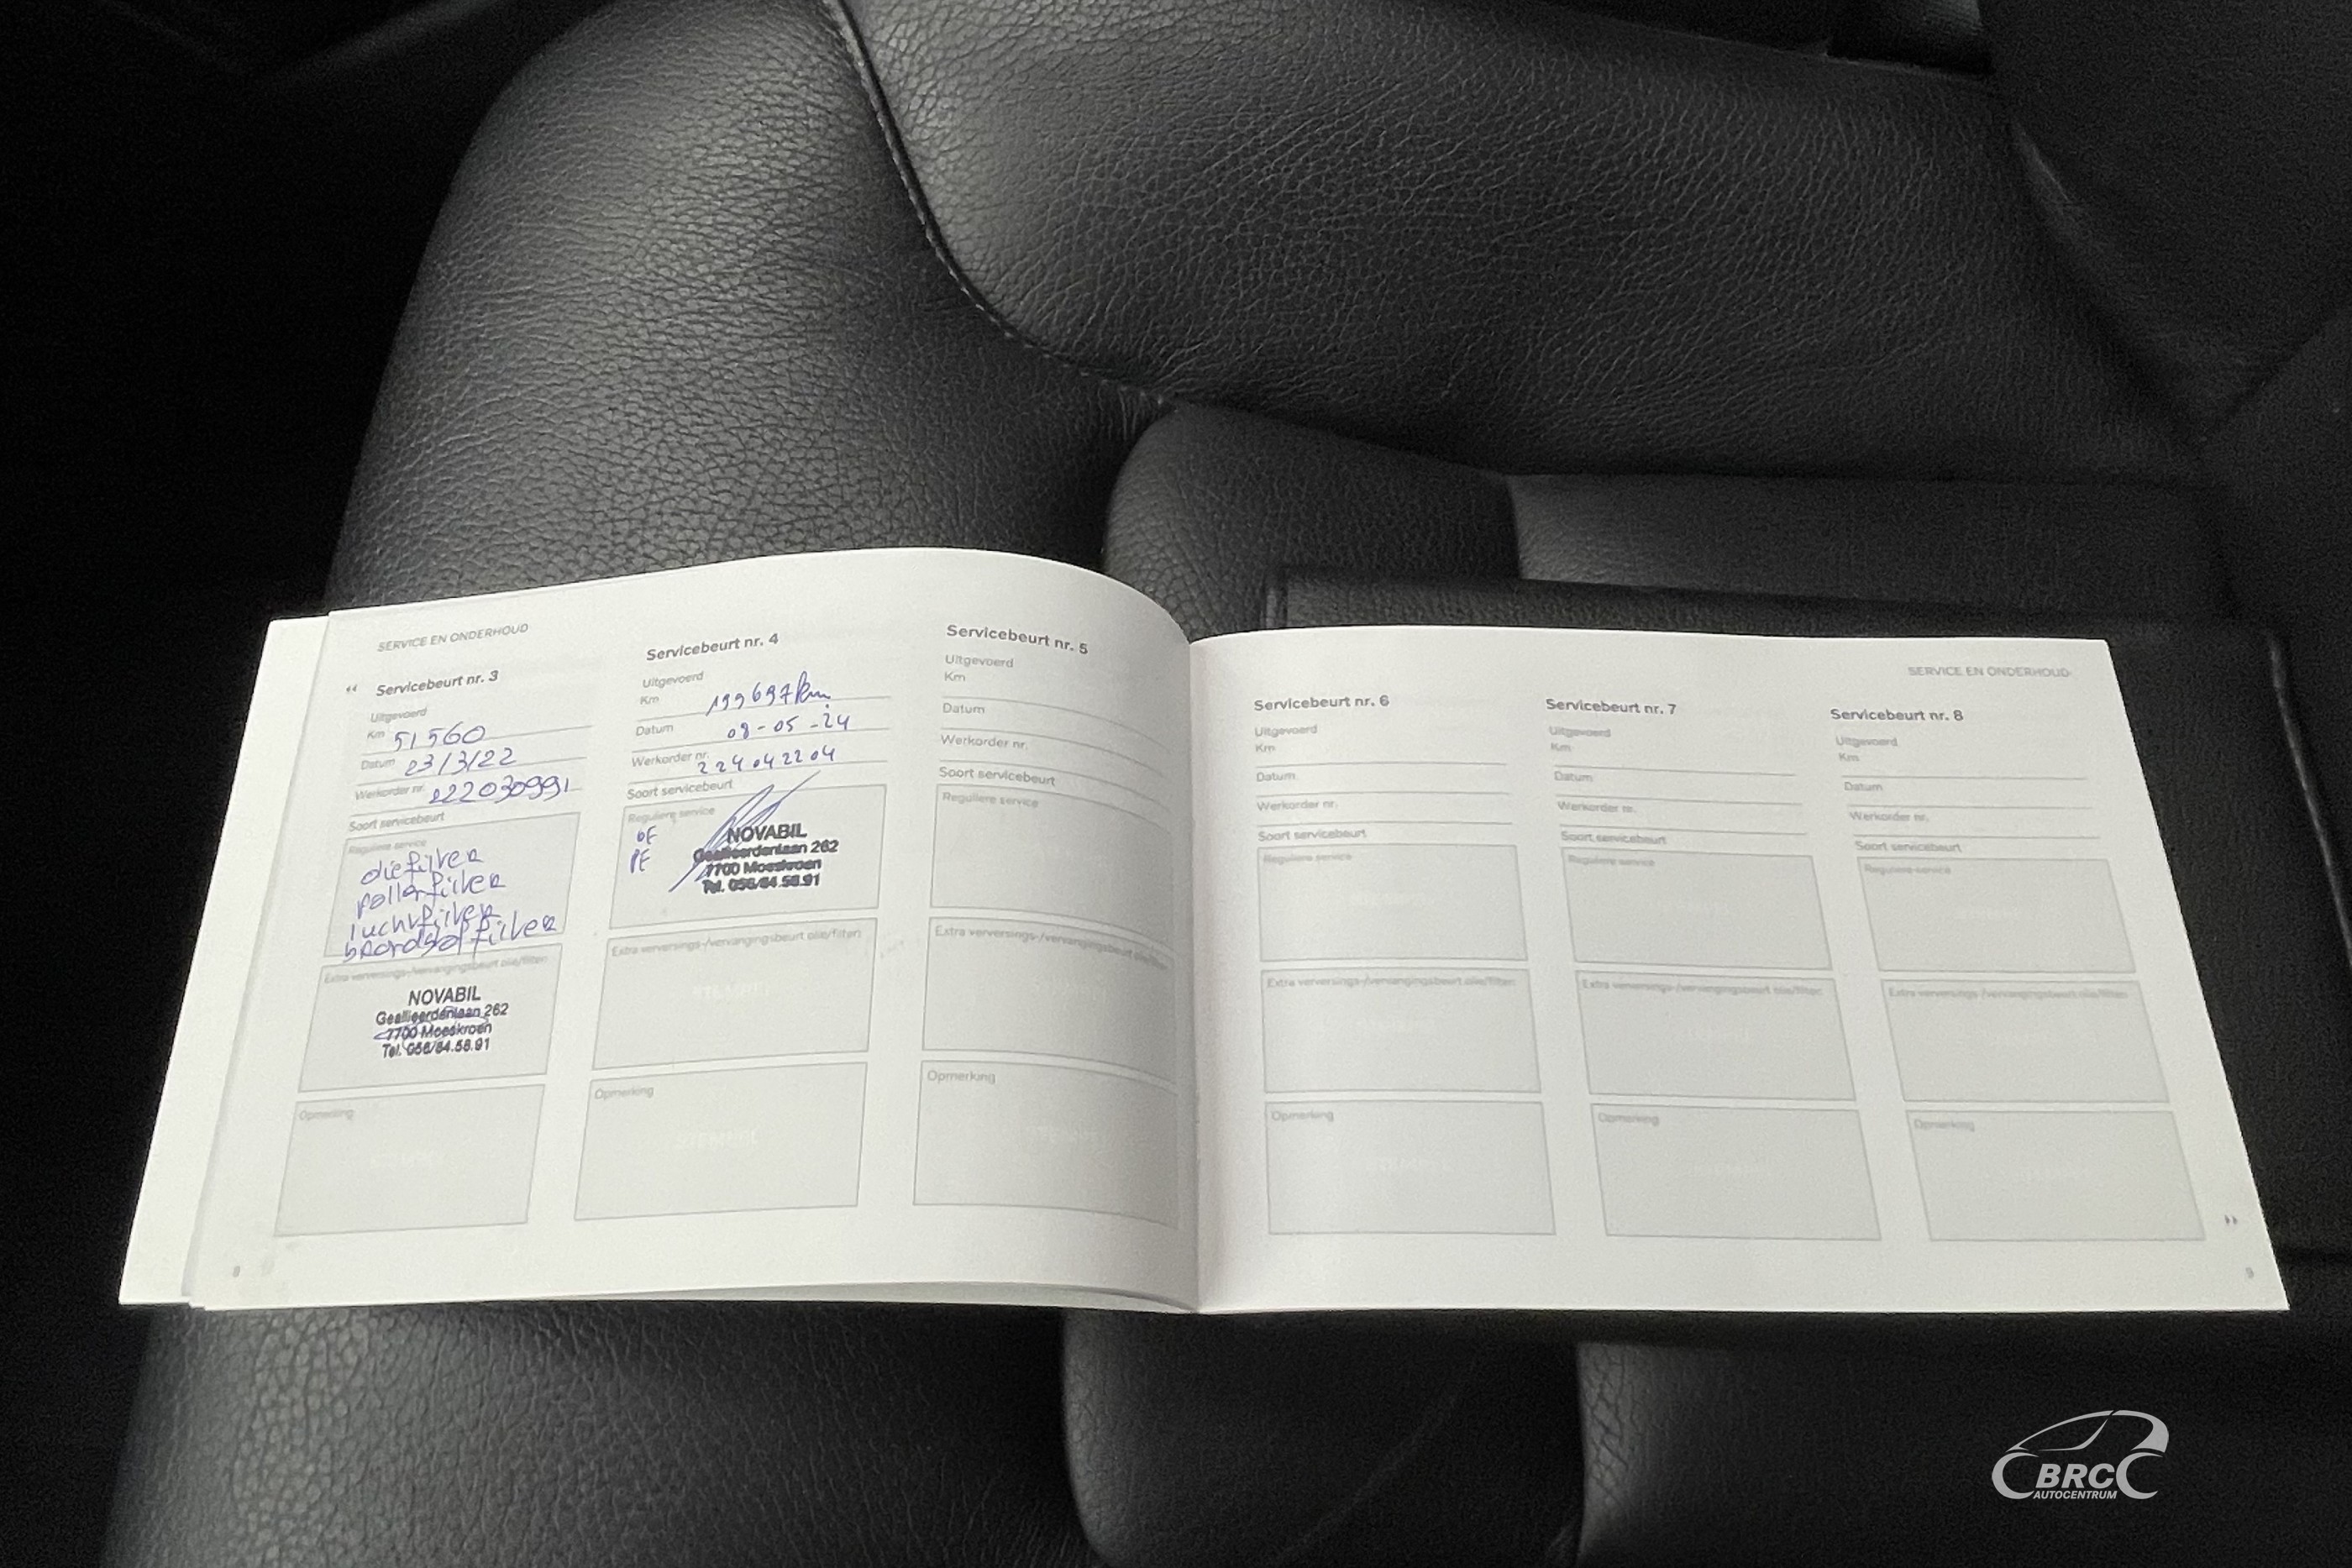 SERVICE EN ONDERHOUD
Servicebeurt nr. 3
Uitgevoerd
Km 51560
Datum 23/3/22
Werkorder nr. 222030991
Soort servicebeurt
Reguliere service
oliefilter
pollenfilter
luchtfilter
brandstof filter
Extra verversings-/vervangingsbeurt olie/filter:
NOVABIL
Geallieerdenlaan 262
7700 Moeskroen
Tel. 056/84.58.91
Opmerking
Servicebeurt nr. 4
Uitgevoerd
Km 199697km
Datum 08-05-24
Werkorder nr. 224042204
Soort servicebeurt
Reguliere service
OF
PF
NOVABIL
Geallieerdenlaan 262
7700 Moeskroen
Tel. 056/84.58.91
Extra verversings-/vervangingsbeurt olie/filter:
STEMPEL
Opmerking
STEMPEL
Servicebeurt nr. 5
Uitgevoerd
Km
Datum
Werkorder nr.
Soort servicebeurt
Reguliere service
Extra verversings-/vervangingsbeurt olie/filter:
Opmerking
8
SERVICE EN ONDERHOUD
Servicebeurt nr. 6
Uitgevoerd
Km
Datum
Werkorder nr.
Soort servicebeurt
Reguliere service
Extra verversings-/vervangingsbeurt olie/filter:
Opmerking
STEMPEL
Servicebeurt nr. 7
Uitgevoerd
Km
Datum
Werkorder nr.
Soort servicebeurt
Reguliere service
Extra verversings-/vervangingsbeurt olie/filter:
Opmerking
Servicebeurt nr. 8
Uitgevoerd
Km
Datum
Werkorder nr.
Soort servicebeurt
Reguliere service
Extra verversings-/vervangingsbeurt olie/filter:
Opmerking
9
BRC
AUTOCENTRUM